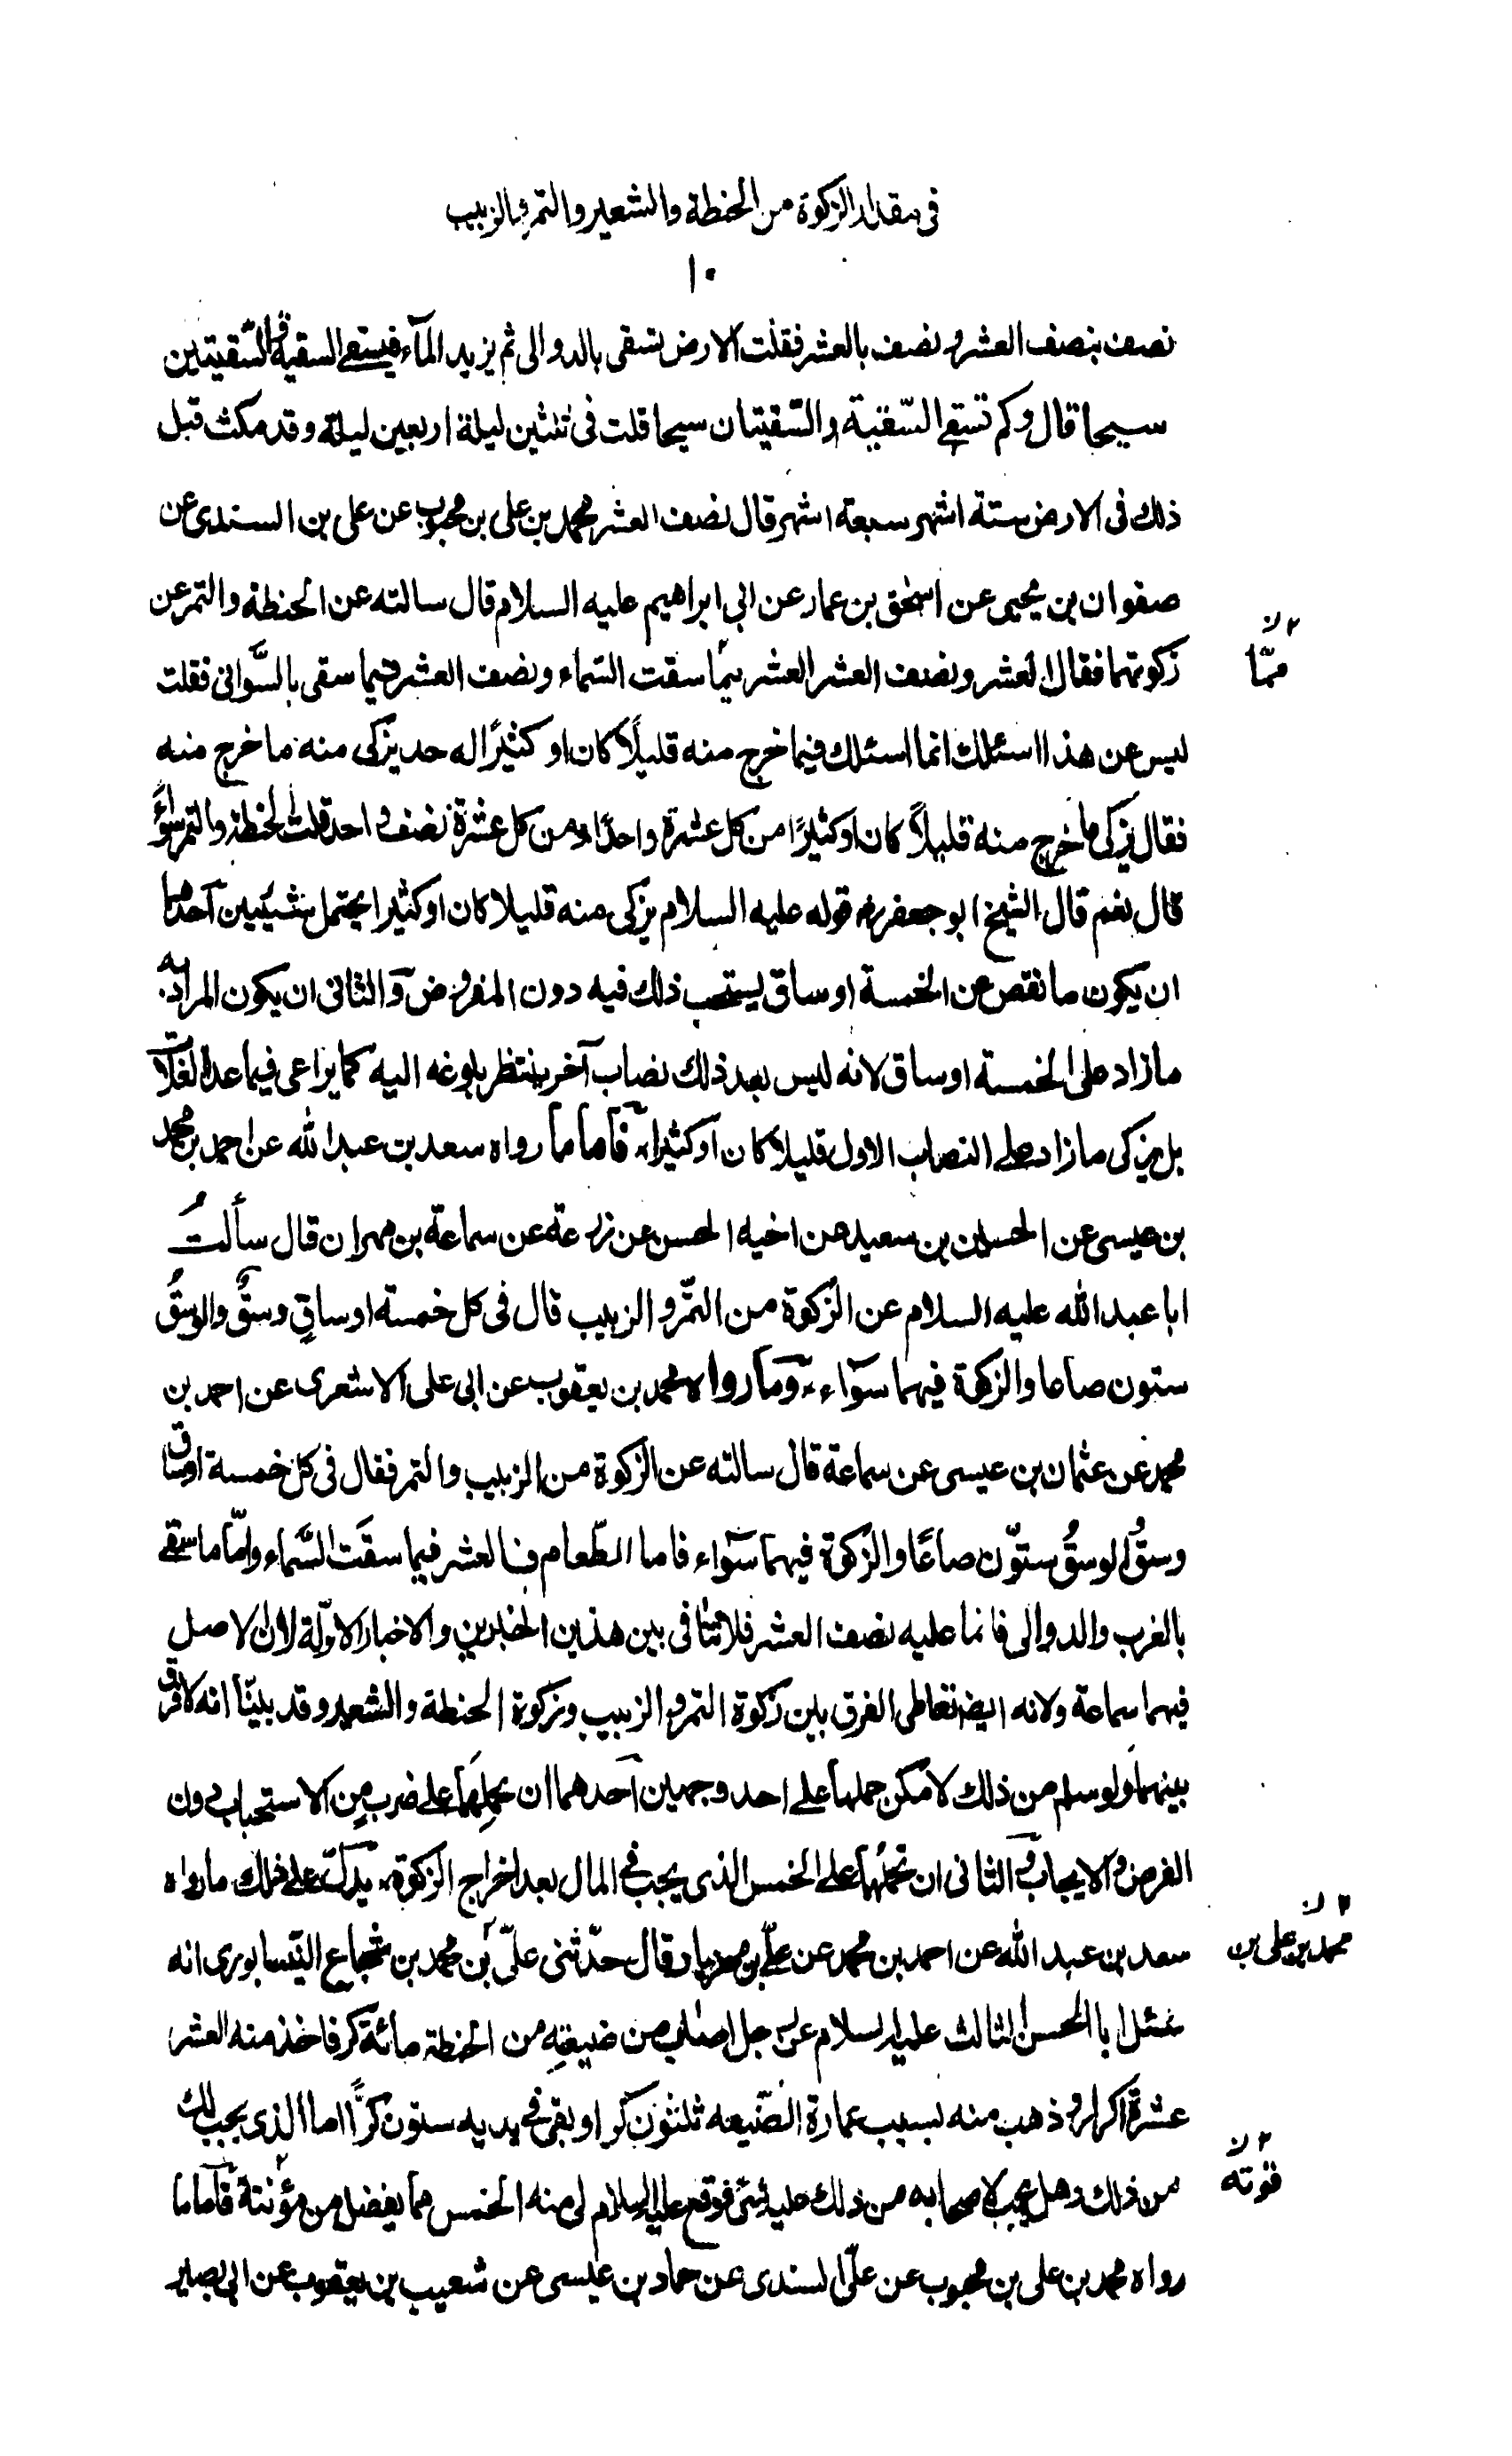 فى مقدار الزكوة من الحنطة والشعير والتمر والزبيب
١٠
نصف بنصف العشر و نصف بالعشر فقلت الارض تسقى بالدوالى ثم يزيد المآء فيسقى السقية والسّقيتين
سيحا قال وكم تسقى السّقية والسّقيتان سيحا قلت فى ثلثين ليلة اربعين ليلة وقد مكث قبل
ذلك فى الارض ستة اشهر سبعة اشهر قال نصف العشر محمد بن على بن محبوب عن على بن السندى عن
صفوان بن يحيى عن اسحٰق بن عمار عن ابى ابراهيم عليه السلام قال سالته عن الحنطة والتمر عن
زكوتهما فقال العشر ونصف العشر العشر فيمّا سقت السّماء ونصف العشر فيما سقى بالسَّوانى فقلت
٢ لا
ممّا
ليس عن هذا اسئلك انما اسئلك فيما خرج منه قليلًا كان او كثيرًا له حد يزكى منه ما خرج منه
فقال يزكى ما خرج منه قليلًا كان او كثيرًا من كل عشرة واحدًا ومن كل عشرة نصف واحد قلت الحنطة والتمر سوآءً
قال نعم قال الشيخ ابو جعفر ره قوله عليه السلام يزكى منه قليلا كان او كثيرا يحتمل شيئين آحدهما
ان يكون ما نقص عن الخمسة اوساق يستحب ذلك فيه دون المفروض وٓالثانى ان يكون المراد به
ما زاد على الخمسة اوساق لانه ليس بعد ذلك نصاب آخر ينتظر بلوغه اليه كما يراعى فيما عدا الغلّات
بل يزكى ما زاد على النصاب الاول قليلًا كان او كثيرا فٓاما ما رواه سعد بن عبد الله عن احمد بن محمد
بن عيسى عن الحسين بن سعيد عن اخيه الحسن عن زرعة عن سماعة بن مهران قال سألتُ
ابا عبد الله عليه السلام عن الزكوة من التمّر و الزبيب قال فى كل خمسة اوساقٍ وسقٌ والوسقُ
ستون صاعا والزكوة فيهما سوٓاء وٓما رواه محمد بن يعقوب عن ابى على الاشعرى عن احمد بن
محمد عن عثمان بن عيسى عن سماعة قال سالته عن الزكوة من الزبيب والتمر فقال فى كل خمسة اوساق
وسقٌ الوسقُ ستّون صاعًا والزكوة فيهما سوٓاء فاما الطّعام فالعشر فيما سقَت السَّماء وامّا ما سقى
بالغرب والدوالى فانما عليه نصف العشر فلا تنافى بين هذين الخبرين والاخبار الاوّلة لان الاصل
فيهما سماعة ولانه ايضا تعاطى الفرق بين زكوة التمر و الزبيب وزكوة الحنطة والشعير وقد بينّا انه لا فرق
بينهما ولو سلم من ذلك لامكن حملهما على احد وجهين آحدهما ان نحملهما على ضرب من الاستحباب دون
الفرض و الايجاب وٓ الثانى ان نحملهما على الخمس الذى يجب فى المال بعد اخراج الزكوة يدلّ على ذلك ما رواه
سعد بن عبد الله عن احمد بن محمد عن علىّ بن مهزيار قال حدّثنى علىّ بن محمد بن شجاع النيّسابورى انه
٢ لا
محمد بن على بن
سئل ابا الحسن الثالث عليه السلام عن رجل اصاب من ضيعتِه من الحنطة مائة كر فاخذ منه العشر
عشرة اكرار و ذهب منه بسبب عمارة الضّيعه ثلثون كرا وبقى فى يديه ستون كرًّا ما الذى يجب لك
من ذلك وهل يجب لاصحابه من ذلك عليه شئ فوقع عليه السلام لى منه الخمس مما يفضل من مؤنته فٓاما ما
٢ لا
قوته
رواه محمد بن على بن محبوب عن علىّ السندى عن حماد بن عيسى عن شعيب بن يعقوب عن ابى بصير